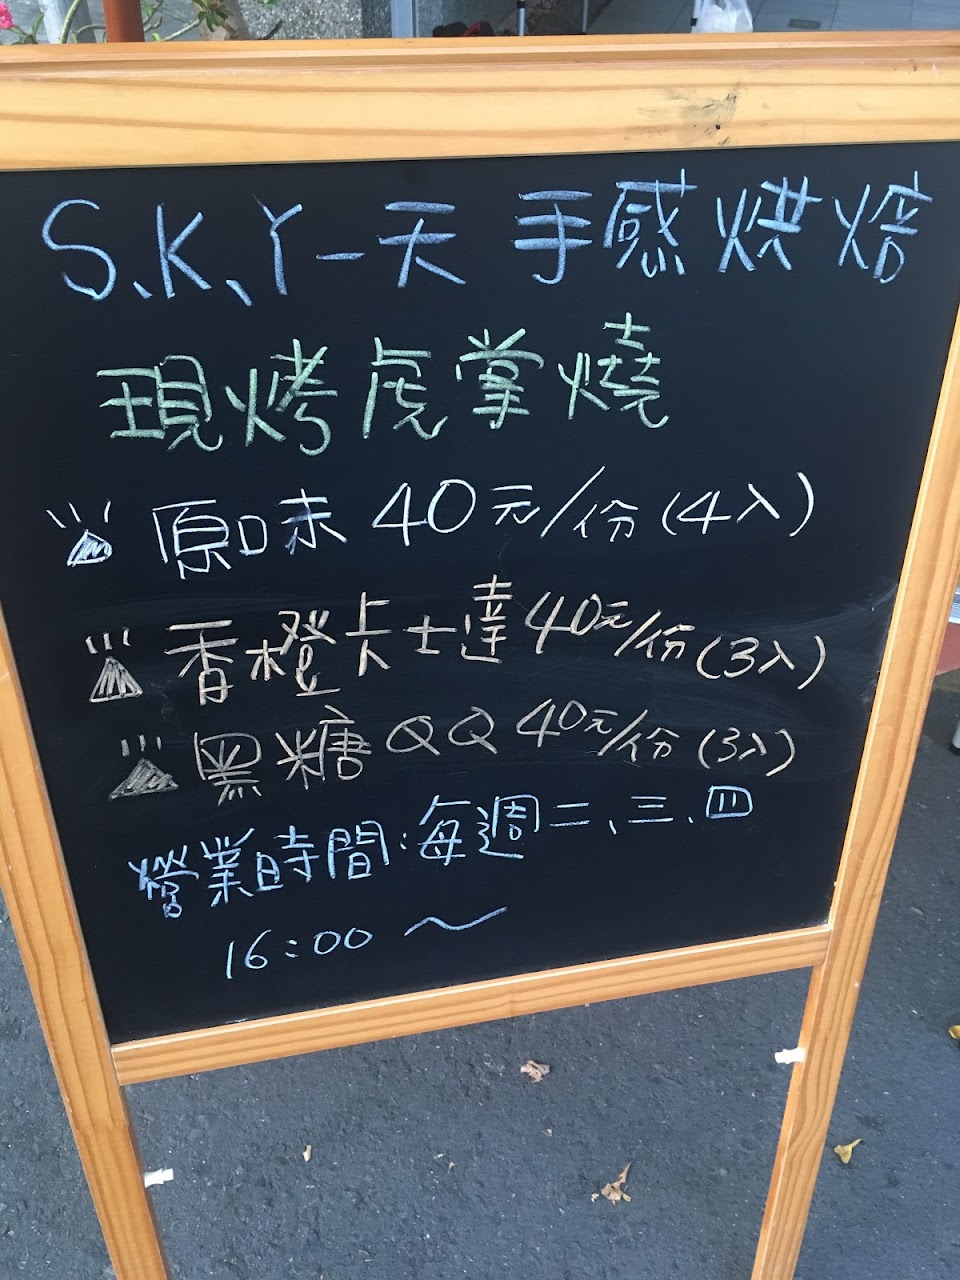 S、K、Y-天 手感烘焙
現烤虎掌燒
原味 40元/份(4入)
香橙卡士達40元/份(3入)
黑糖QQ 40元/份(3入)
營業時間:每週二、三、四
16:00 ～